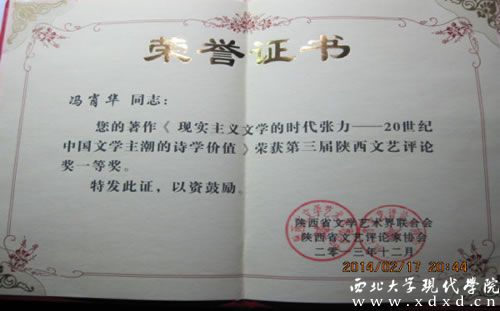 荣誉证书
冯肖华 同志：
您的著作《 现实主义文学的时代张力——20世纪
中国文学主潮的诗学价值 》荣获第三届陕西文艺评论
奖一等奖。
特发此证，以资鼓励。
陕西省文学艺术界联合会
陕西省文艺评论家协会
二〇一三年十二月
2014/02/17 20:44
西北大学现代学院
www.xdxd.cn